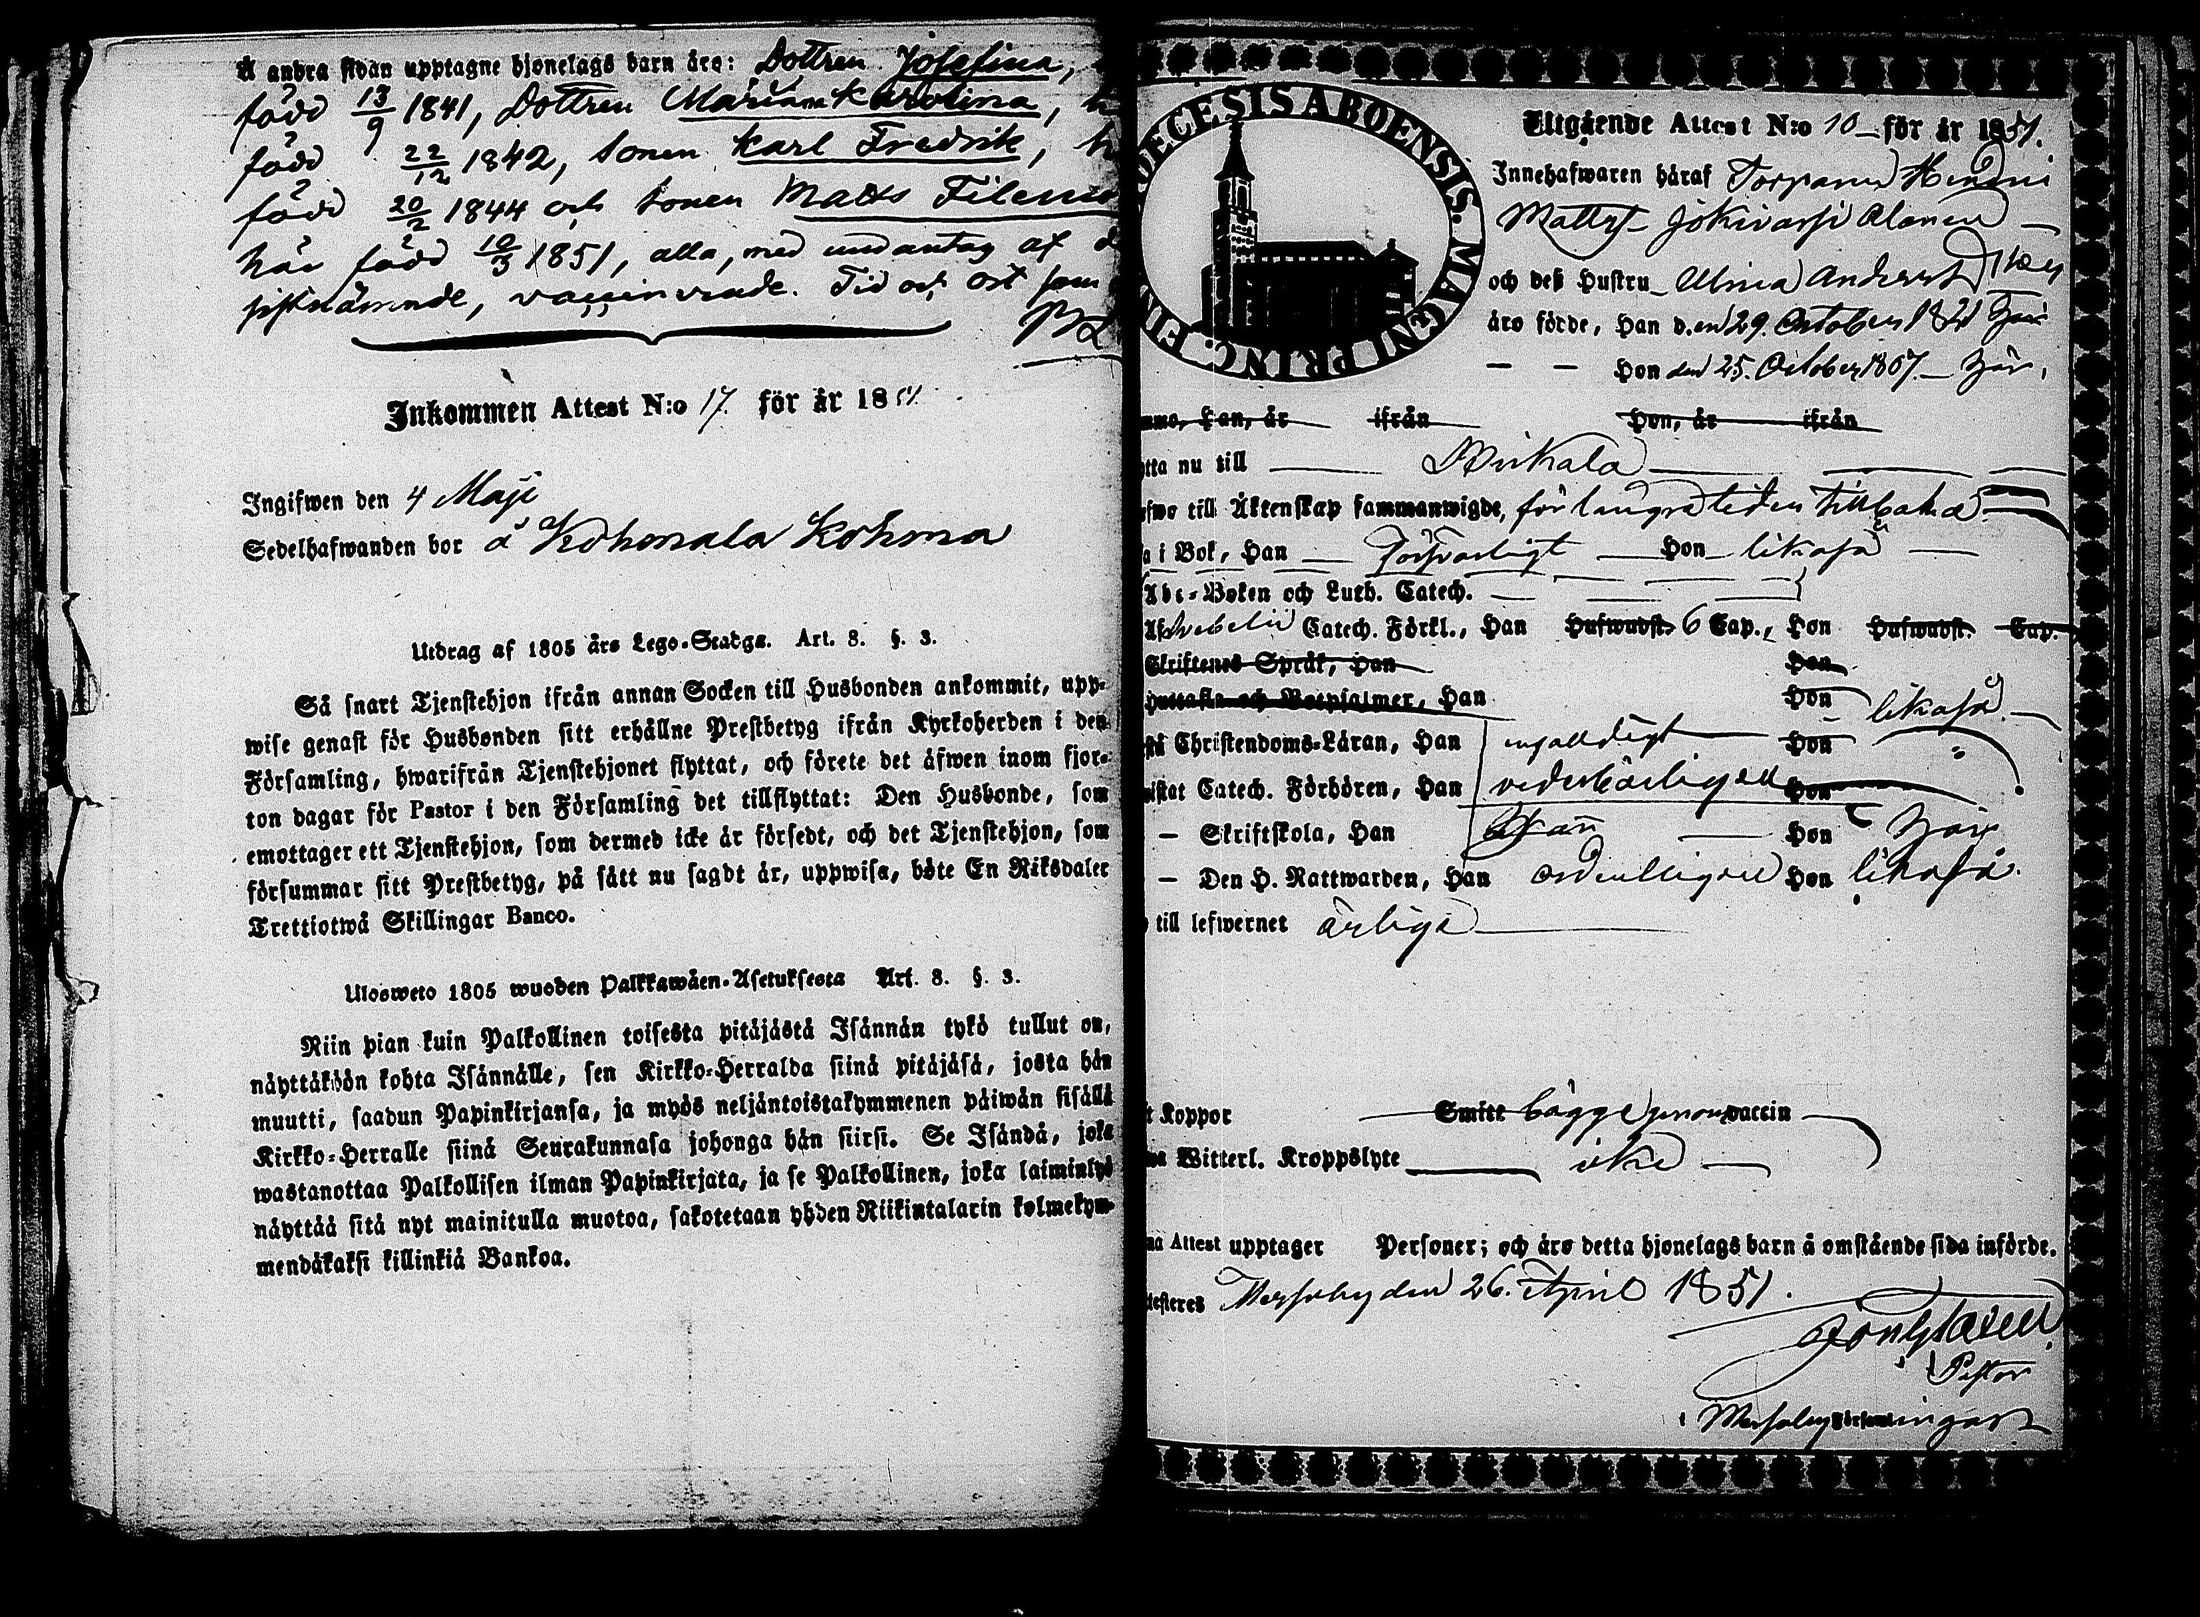 Å andra sidan upptagne hjonelags barn äro: Dottren Josefina,
född 13/9 1841, Dottren Maria Karolina,
född 22/12 1842, sonen Karl Fredrik,
född 20/2 1844 och sonen Matts
här född 10/3 1851, alla, med undantag af
sistnämnde, vaccinerade. Tid och ort som
Inkommen Attest N:o 17. för år 1851.
Ingifwen den 4 Maji
Sedelhafwanden bor å Kohmala Kohma
Utdrag af 1805 års Lego-Stadga. Art. 8. §. 3.
Så snart Tjenstehjon ifrån annan Socken till Husbonden ankommit, upp-
wise genast för Husbonden sitt erhållne Prestbetyg ifrån Kyrkoherden i den
Församling, hwarifrån Tjenstehjonet flyttat, och förete det äfwen inom fjor-
ton dagar för Pastor i den Församling det tillflyttat: Den Husbonde, som
emottager ett Tjenstehjon, som dermed icke är försedt, och det Tjenstehjon, som
försummar sitt Prestbetyg, på sätt nu sagdt är, uppwisa, böte En Riksdaler
Trettiotwå Skillingar Banco.
Ulosweto 1805 wuoden Palkkawäen-Asetuksesta Art. 8. §. 3.
Niin pian kuin Palkollinen toisesta pitäjästä Isännän tykö tullut on,
näyttäköön kohta Isännälle, sen Kirkko-Herralda siinä pitäjäsä, josta hän
muutti, saadun Papinkirjansa, ja myös neljäntoistakymmenen päiwän sisällä
Kirkko-Herralle siinä Seurakunnasa johonga hän siirsi. Se Isändä, joka
wastanottaa Palkollisen ilman Papinkirjata, ja se Palkollinen, joka laiminlyö
näyttää sitä nyt mainitulla muotoa, sakotetaan yhden Riikintalarin kolmekym-
mendäkaksi killinkiä Bankoa.
DECESIS ABOENSIS. MAGNI PRINC. FIN
Utgående Attest N:o 10 för år 1851.
Innehafwaren häraf Torparen
Matts
och deß Hustru Ulrica Andersd
äro födde, Han d. en 29. October 1821 här
Hon den 25. October 1807. här,
Han, år ifrån Hon, år ifrån
nu till Birkala
till Äktenskap sammanwigde, för längre tiden tillbaka
i Bok, Han försvarligt Hon likaså
Abc-Boken och Luth. Catech.
Af Svebelii Catech. Förkl., Han Hufwudst. 6 Cap., Hon Hufwudst. Cap.
Skriftenes Språk, Han Hon
Hustafla och Botpsalmer, Han Hon likaså
Christendoms-Läran, Han Hon
Catech. Förhören, Han vederbörligen Hon
Skriftskola, Han Hon här
Den H. Nattwarden, Han ordentligen Hon likaså.
till lefwernet ärliga
Koppor Smitt bägge genom vaccin
Witterl. Kroppslyte icke
Attest upptager Personer; och äro detta hjonelags barn å omstående sida införde.
den 26. April 1851.
Pastor